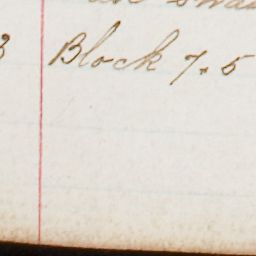 3 Block 7. 5